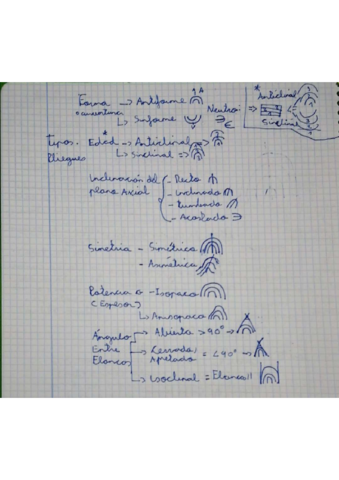 Forma → Antiforme
o curvatura
↳ Sinforme
Neutro:
* Anticlinal
Sinclinal
Tipos. Edad* → Anticlinal =>
Pliegues ↳ Sinclinal =>
Inclinación del
plano Axial
- Recto
- Inclinado
- Tumbado
- Acostado
Simetría - Simétrica
- Asimétrica
Potencia o - Isopaco
(Espesor)
↳ Anisopaco
Ángulo
Entre
Flancos
→ Abierta > 90° →
→ Cerrada / = < 90° →
Apretado
↳ Isoclinal = Flancos //